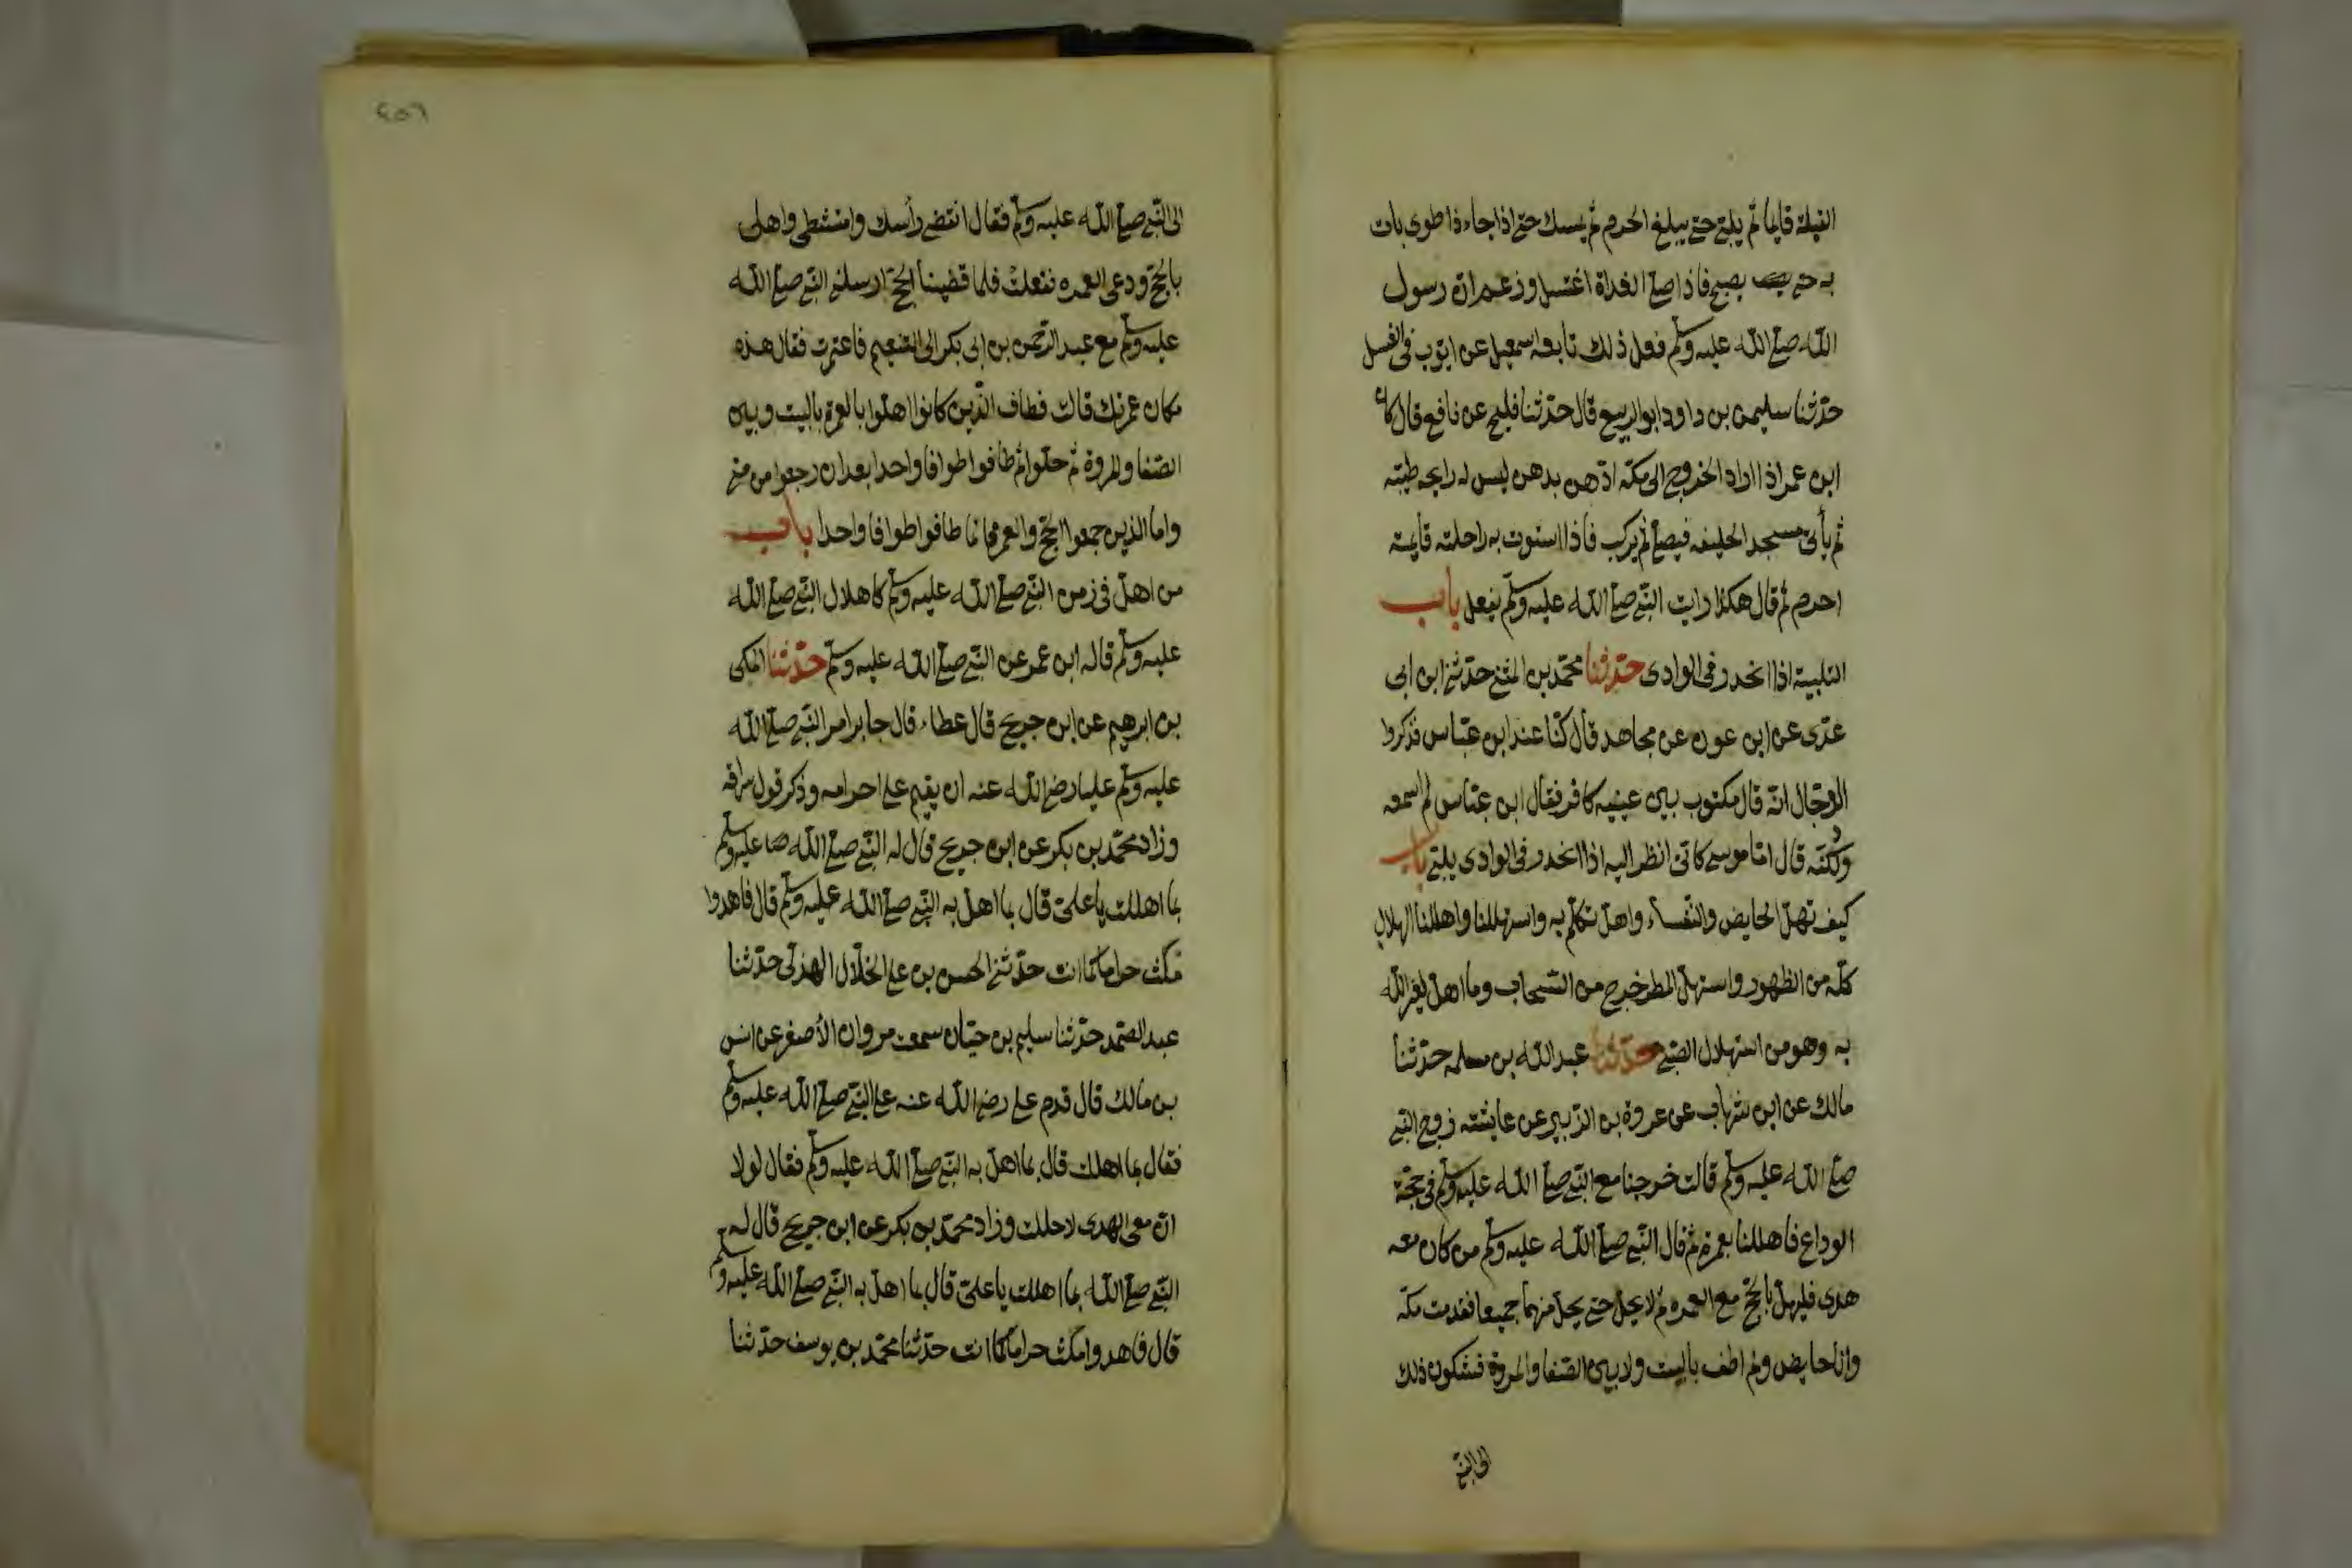 القبلة قايما ثم يلبّي حتى يبلغ الحرم ثم يمسك حتى اذا جاء ذا طوى بات
به حتى يصبح فاذا صلى الغداة اغتسل وزعم انّ رسول
الله صلى الله عليه وسلم فعل ذلك تابعه اسمعيل عن ايّوب فى الغسل
حدّثنا سليمن بن داود ابو الربيع قال حدّثنا فليح عن نافع قال كان
ابن عمر اذا اراد الخروج الى مكة ادّهن بدهن ليس له رايحه طيبّه
ثم يأتى مسجد الحليفه فيصلى ثم يركب فاذا استوت به راحلته قايمة
احرم ثم قال هكذا رايت النّبى صلى الله عليه وسلم يفعل باب
التلبية اذا انحدر فى الوادى حدّثنا محمّد بن المثنى حدّثنى ابن ابى
عدّى عن ابن عون عن مجاهد قال كنّا عند ابن عبّاس فذكروا
الدّجال انّه قال مكتوب بين عينيه كافر فقال ابن عبّاس لم اسمعه
ولكنّه قال امّا موسى كانّى انظر اليه اذا انحدر فى الوادى يلبّى باب
كيف تهلّ الحايض والنّفساء واهلّ تكلّم به واستهللنا واهللنا الهلال
كلّه من الظهور واستهلّ المطر خرج من السّحاب وما اهلّ لغير الله
به وهو من استهلال الصّبى حدّثنا عبد الله بن مسلمه حدّثنا
مالك عن ابن شهاب عن عروة بن الزّبير عن عايشة زوج النّبى
صلى الله عليه وسلم قالت خرجنا مع النّبى صلى الله عليه وسلم فى حجّة
الوداع فاهللنا بعمرة ثم قال النّبى صلى الله عليه وسلم من كان معه
هدى فليهلّ بالحجّ مع العمره ثم لا يحلّ حتى يحلّ منهما جميعا فقدمت مكّه
وانا حايض ولم اطف بالبيت ولا بين الصّفا والمروة فشكوت ذلك
الى النّبى
٤٥٦
الى النّبى صلى الله عليه وسلم فقال انقضى رأسك وامتشطى واهلى
بالحجّ ودعى العمره ففعلت فلما قضينا الحجّ ارسلنى النّبى صلى الله
عليه وسلم مع عبد الرّحمن بن ابى بكر الى التنعيم فاعتمرت فقال هذه
مكان عمرتك قالت فطاف الّذين كانوا اهلّوا بالعمرة بالبيت وبين
الصّفا والمروة ثم حلّوا ثم طافوا طوافا واحدا بعد ان رجعوا من منى
واما الذين جمعوا الحجّ والعمرة فانما طافوا طوافا واحدا باب
من اهلّ فى زمن النّبى صلى الله عليه وسلم كاهلال النّبى صلى الله
عليه وسلم قاله ابن عمر عن النّبى صلى الله عليه وسلم حدّثنا المكى
بن ابرهيم عن ابن جريج قال عطاء قال جابر امر النّبى صلى الله
عليه وسلم عليا رضى الله عنه ان يقيم على احرامه وذكر قول سراقه
وزاد محمّد بن بكر عن ابن جريج قال له النّبى صلى الله عليه وسلم
بما اهللت يا علىّ قال بما اهلّ به النّبى صلى الله عليه وسلم قال فاهد وا
مكث حراما كما انت حدّثنى الحسن بن على الخلّال الهذلّى حدّثنا
عبد الصّمد حدّثنا سليم بن حيّان سمعت مروان الأصفر عن انس
بن مالك قال قدم على رضى الله عنه على النّبى صلى الله عليه وسلم
فقال بما اهللت قال بما اهلّ به النّبى صلى الله عليه وسلم فقال لولا
انّ معى الهدى لاحللت وزاد محمّد بن بكر عن ابن جريج قال له
النّبى صلى الله بما اهللت يا علىّ قال بما اهلّ به النّبى صلى الله عليه وسلم
قال فاهد وامكث حراما كما انت حدّثنا محمّد بن يوسف حدّثنا